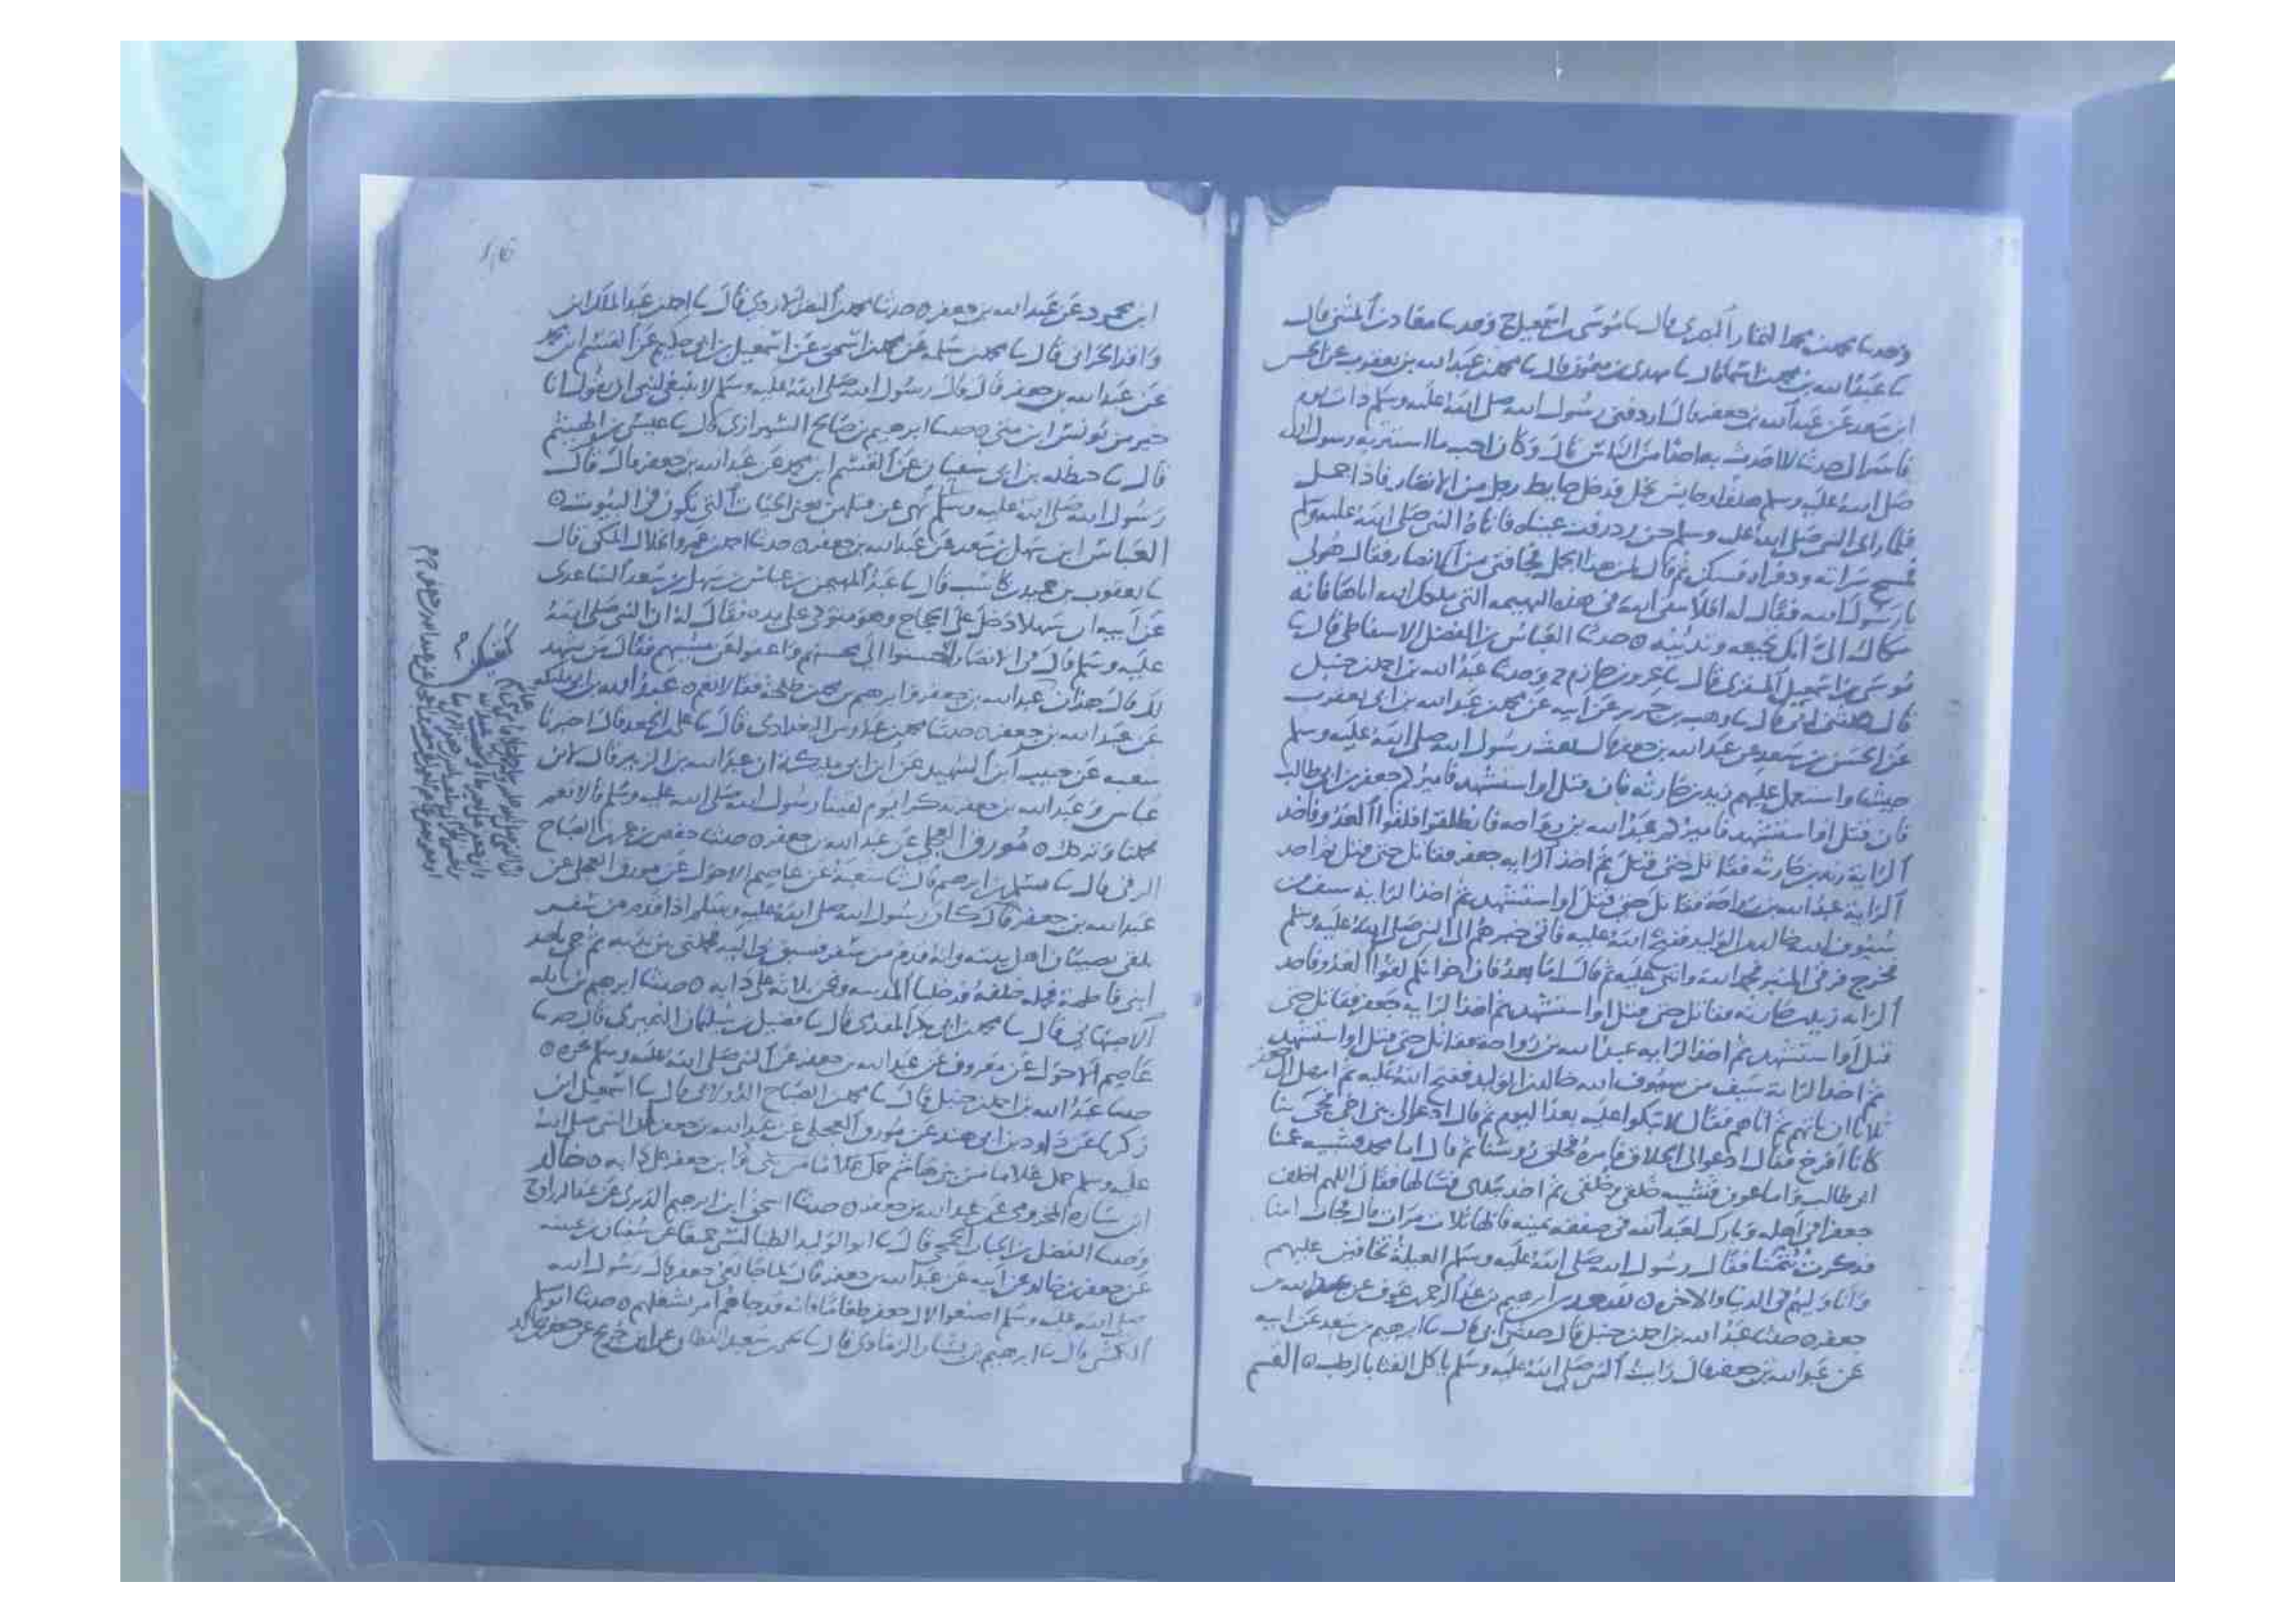 وحدثنا محمد بن محمد التمار البصري قال نا موسى بن اسمعيل ح وحدثنا معاذ بن المثنى قال
نا عبد الله بن محمد بن اسما قال نا مهدي بن ميمون قال نا محمد بن عبد الله بن يعقوب عن الحسن
ابن سعد عن عبد الله بن جعفر قال اردفني رسول الله صلى الله عليه وسلم ذات يوم
فاسر الي حديثا لا احدث به احدا من الناس قال وكان احب ما استتر به رسول الله
صلى الله عليه وسلم هدفا او حايش نخل فدخل حايط رجل من الانصار فاذا جمل
فلما راى النبي صلى الله عليه وسلم حن وذرفت عيناه فاتاه النبي صلى الله عليه وسلم
فمسح سراته وذفراه فسكن ثم قال لمن هذا الجمل فجا فتى من الانصار فقال هو لي
يا رسول الله فقال له افلا تتقي الله في هذه البهيمة التي ملكك الله اياها فانه
شكاك الي انك تجيعه وتدئبه ○ حدثنا العباس بن الفضل الاسفاطي قال نا
موسى بن اسمعيل المنقري قال نا جرير بن حازم ح وحدثنا عبد الله بن احمد بن حنبل
قال حدثني ابي قال نا وهب بن جرير عن ابيه عن محمد بن عبد الله بن ابي يعقوب
عن الحسن بن سعد عن عبد الله بن جعفر قال بعث رسول الله صلى الله عليه وسلم
جيشا واستعمل عليهم زيد بن حارثه فان قتل او استشهد فاميركم جعفر بن ابي طالب
فان قتل او استشهد فاميركم عبد الله بن رواحه فانطلقوا فلقوا العدو فاخذ
الراية زيد بن حارثه فقاتل حتى قتل ثم اخذ الرايه جعفر فقاتل حتى قتل ثم اخذ
الراية عبد الله بن رواحة فقاتل حتى قتل او استشهد ثم اخذ الراية سيف من
سيوف الله خالد بن الوليد ففتح الله عليه فاتى خبرهم الى النبي صلى الله عليه وسلم
فخرج فرقى المنبر فحمد الله واثنى عليه ثم قال اما بعد فان اخوانكم لقوا العدو فاخذ
الرايه زيد بن حارثه فقاتل حتى قتل او استشهد ثم اخذ الرايه جعفر فقاتل حتى
قتل او استشهد ثم اخذ الرايه عبد الله بن رواحه فقاتل حتى قتل او استشهد
ثم اخذ الراية سيف من سيوف الله خالد بن الوليد ففتح الله عليه ثم امهل ال جعفر
ثلاثا ان ياتهم ثم اتاهم فقال لا تبكوا عليه بعد اليوم ثم قال ادعوا لي بني اخي فجي بنا
كانا افرخ فقال ادعوا لي الحلاق فامره فحلق رؤسنا ثم قال اما محمد فشبيه عمنا
ابي طالب واما عون فشبيه خلقي وخلقي ثم اخذ بيدي فشالها فقال اللهم اخلف
جعفرا في اهله وبارك لعبد الله في صفقة يمينه قالها ثلاث مرات قال فجات امنا
فذكرت يتمنا فقال رسول الله صلى الله عليه وسلم العيلة تخافين عليهم
وانا وليهم في الدنيا والاخره ○ سعد بن ابرهيم بن عبد الرحمن بن عوف عن عبد الله بن
جعفر ○ حدثنا عبد الله بن احمد بن حنبل قال حدثني ابي قال نا ابرهيم بن سعد عن ابيه
عن عبد الله بن جعفر قال رايت النبي صلى الله عليه وسلم ياكل القثا بالرطب ○ القسم
ابن محمد عن عبد الله بن جعفر ○ حدثنا محمد بن النضر الازدي قال نا احمد بن عبد الملك ابن
واقد الحراني قال نا محمد بن سلمه عن محمد بن اسحق عن اسمعيل بن ابي حكيم عن القسم ابن محمد
عن عبد الله بن جعفر قال قال رسول الله صلى الله عليه وسلم لا ينبغي لنبي ان يقول انا
خير من يونس ابن متى ○ حدثنا ابرهيم بن صالح الشيرازي قال نا عيسى بن الهيثم
قال نا حنظله بن ابي سفيان عن القسم ابن محمد عن عبد الله بن جعفر قال قال
رسول الله صلى الله عليه وسلم نهى عن قتل من بعض الحيات التي تكون في البيوت ○
العباس ابن سهل بن سعد عن عبد الله بن جعفر ○ حدثنا احمد بن عمرو الخلال المكي قال
نا يعقوب بن حميد بن كاسب قال نا عبد المهيمن بن عباس بن سهل بن سعد الساعدي
عن ابيه ان سهلا دخل على الحجاج وهو متوكئ على يده فقال له ان النبي صلى الله
عليه وسلم قال في الانصار احسنوا الى محسنهم واعفوا عن مسيهم فقال من يشهد
لك قال هذان عبد الله بن جعفر وابرهيم بن محمد بن طلحة فقالا نعم ○ عبد الله بن ابي مليكه
عن عبد الله بن جعفر ○ حدثنا محمد بن عبدوس البغدادي قال نا علي بن الجعد قال اخبرنا
شعبه عن حبيب ابن الشهيد عن ابن ابي مليكة ان عبد الله بن الزبير قال لابن
عباس وعبد الله بن جعفر تذكرا يوم لقينا رسول الله صلى الله عليه وسلم قالا نعم
حملنا وتركك ○ مورق العجلي عن عبد الله بن جعفر ○ حدثنا حفص بن عمر بن الصباح
الرقي قال نا مسلم بن ابرهيم قال نا شعبة عن عاصم الاحول عن مورق العجلي عن
عبد الله بن جعفر قال كان رسول الله صلى الله عليه وسلم اذا قدم من سفر
تلقى بصبيان اهل بيته وانه قدم من سفر فسبق بي اليه فحملني بين يديه ثم جي باحد
ابني فاطمة فحمله خلفه فدخلنا المدينه ونحن ثلاثه على دابه ○ حدثنا ابرهيم بن نايله
الاصبهاني قال نا محمد بن ابي بكر المقدمي قال نا فضيل بن سليمان النميري قال حدثنا
عاصم الاحول عن معروف عن عبد الله بن جعفر عن النبي صلى الله عليه وسلم نحوه ○
حدثنا عبد الله بن احمد بن حنبل قال نا محمد بن الصباح الدولابي قال نا اسمعيل ابن
زكريا عن داود بن ابي هند عن مورق العجلي عن عبد الله بن جعفر ان النبي صلى الله
عليه وسلم حمل غلاما من بني هاشم حمل غلاما من بني وابن جعفر على دابه ○ خالد
ابن ساره المخزومي عن عبد الله بن جعفر ○ حدثنا اسحق ابن ابرهيم الدبري عن عبد الرزاق ح
وحدثنا الفضل بن الحباب الجمحي قال نا ابو الوليد الطيالسي جميعا عن سفيان بن عيينه
عن جعفر بن خالد عن ابيه عن عبد الله بن جعفر قال لما جا نعي جعفر قال رسول الله
صلى الله عليه وسلم اصنعوا لال جعفر طعاما فانه قد جاهم امر يشغلهم ○ حدثنا ابو مسلم
الكشي قال نا ابرهيم بن بشار الرمادي قال نا يحيى بن سعيد القطان عن ابن جريج عن جعفر بن خالد